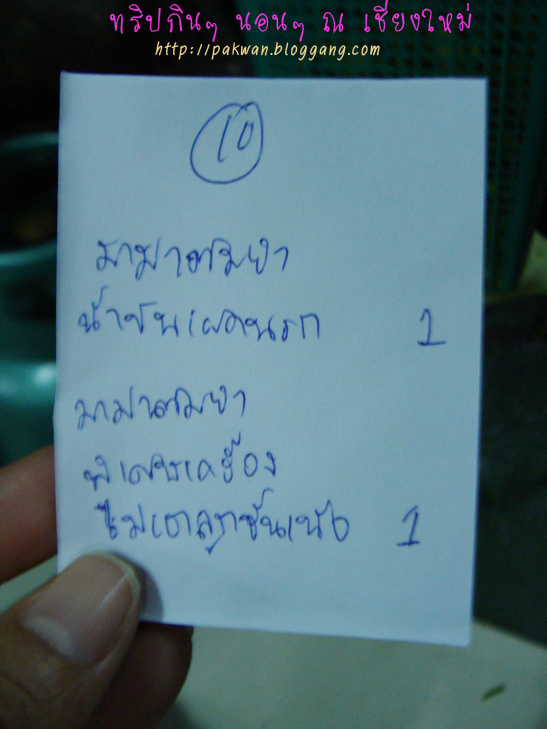 ทริปกินๆ นอนๆ ณ เชียงใหม่
http://pakwan.bloggang.com
10
มาม่าต้มยำ
น้ำข้นเผ็ดนรก 1
มาม่าต้มยำ
พิเศษเครื่อง
ไม่เอาลูกชิ้นเนื้อ 1